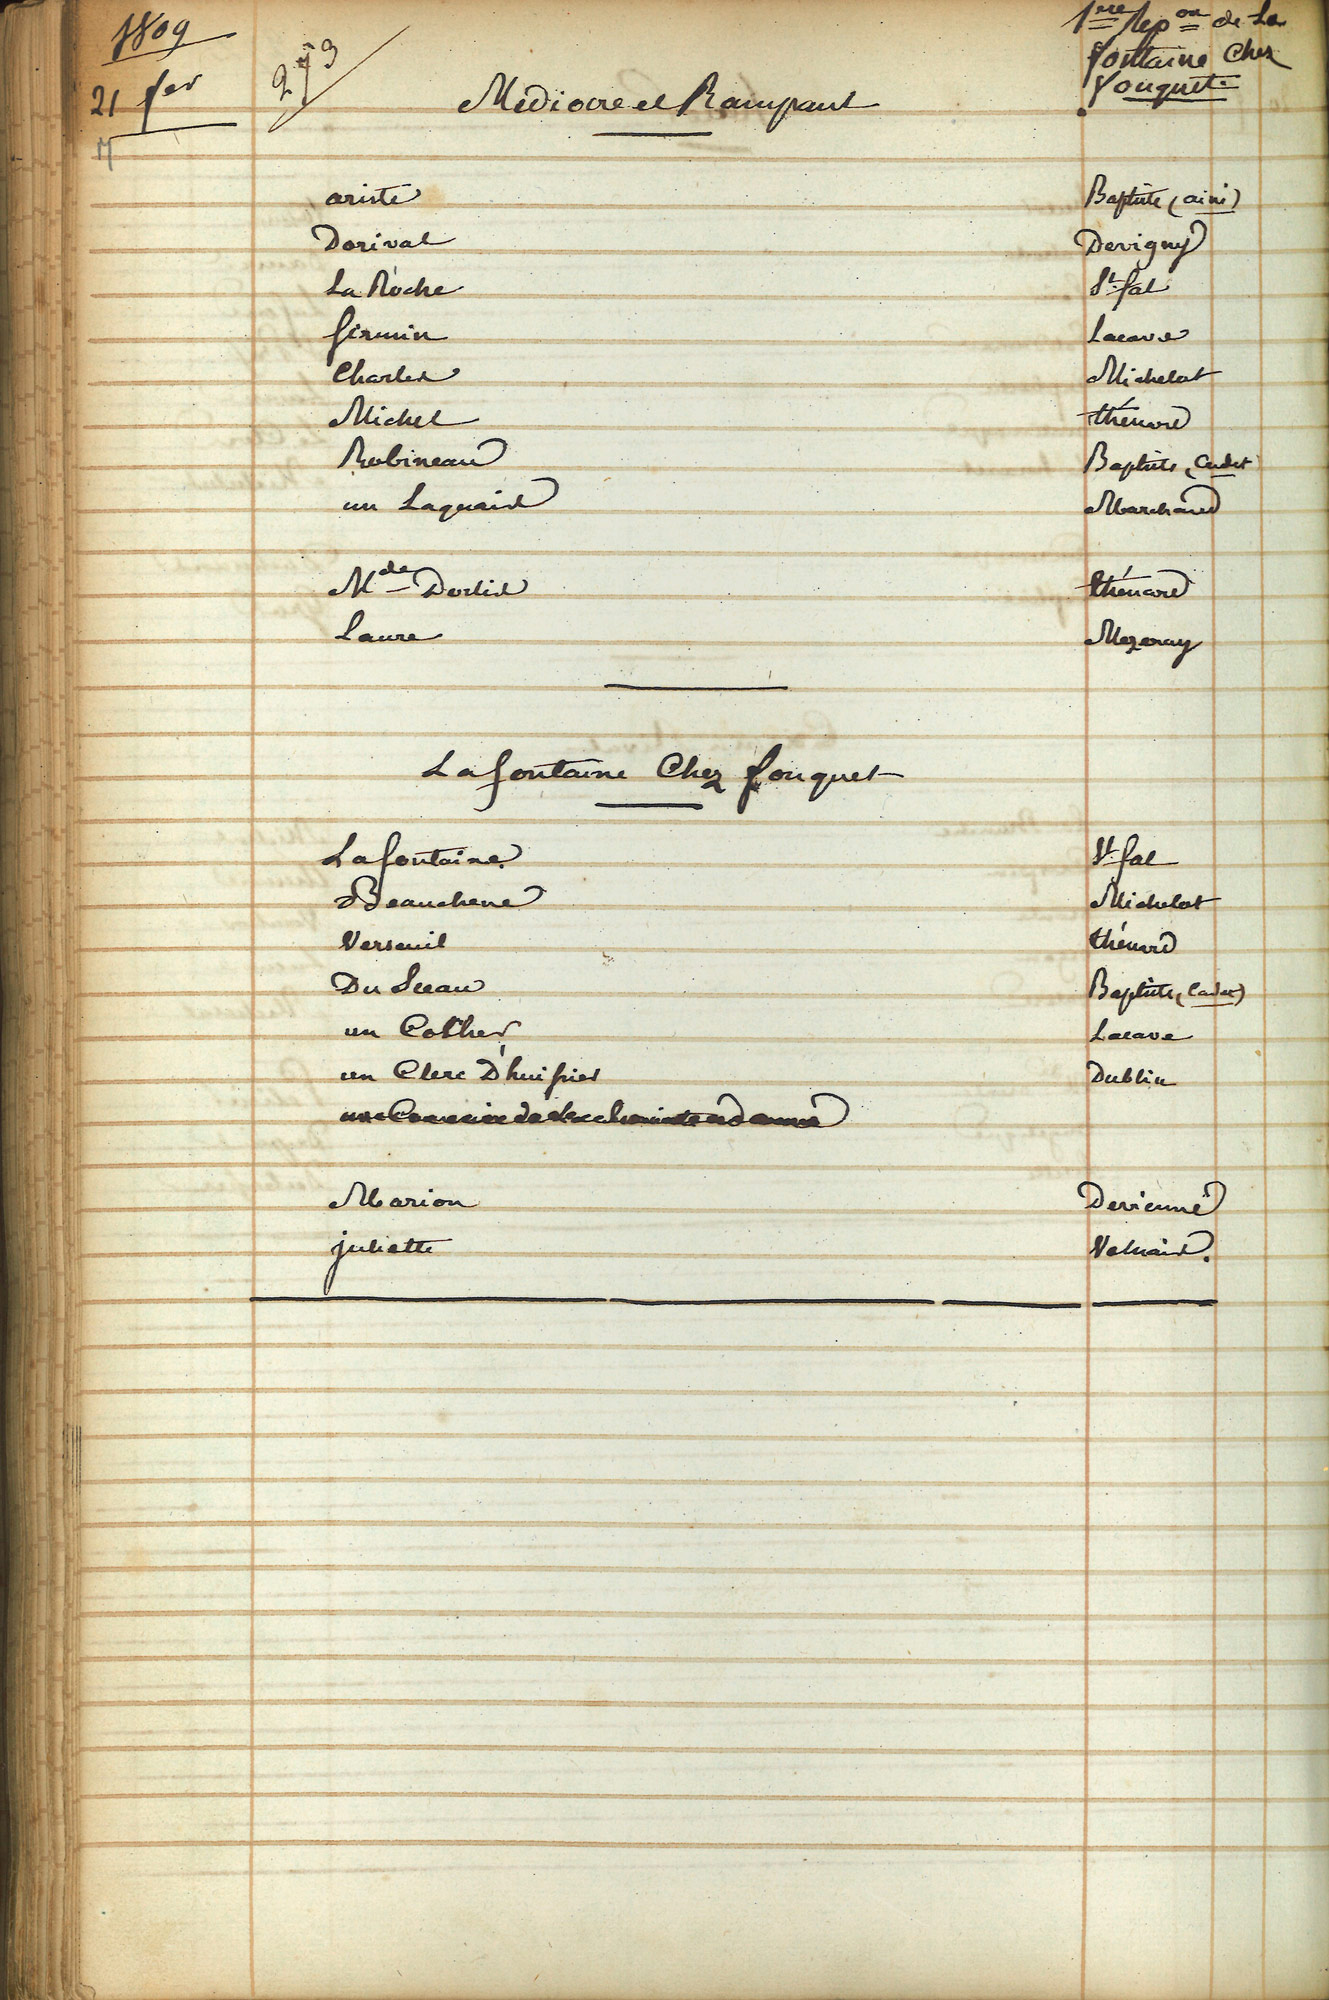 1809
21 fer
M
273
1re Repon de La
fontaine Chez
fouquet.
Mediocre et Rampant
ariste Baptiste (ainé)
Dorival Devigny
La Roche St. fal
firmin Lacave
Charles Michelot
Michel thénard
Robineau Baptiste (Cadet
un Laquais Marchand
Mde Dorlis thénard
Laure Mezeray
La fontaine Chez fouquet
La fontaine St. fal
Beauchene Michelot
Verseuil thénard
Du Sceau Baptiste (Cadet)
un Cocher Lacave
un Clerc D'huissier Dublin
Marion Devienne
juliette Volnais.